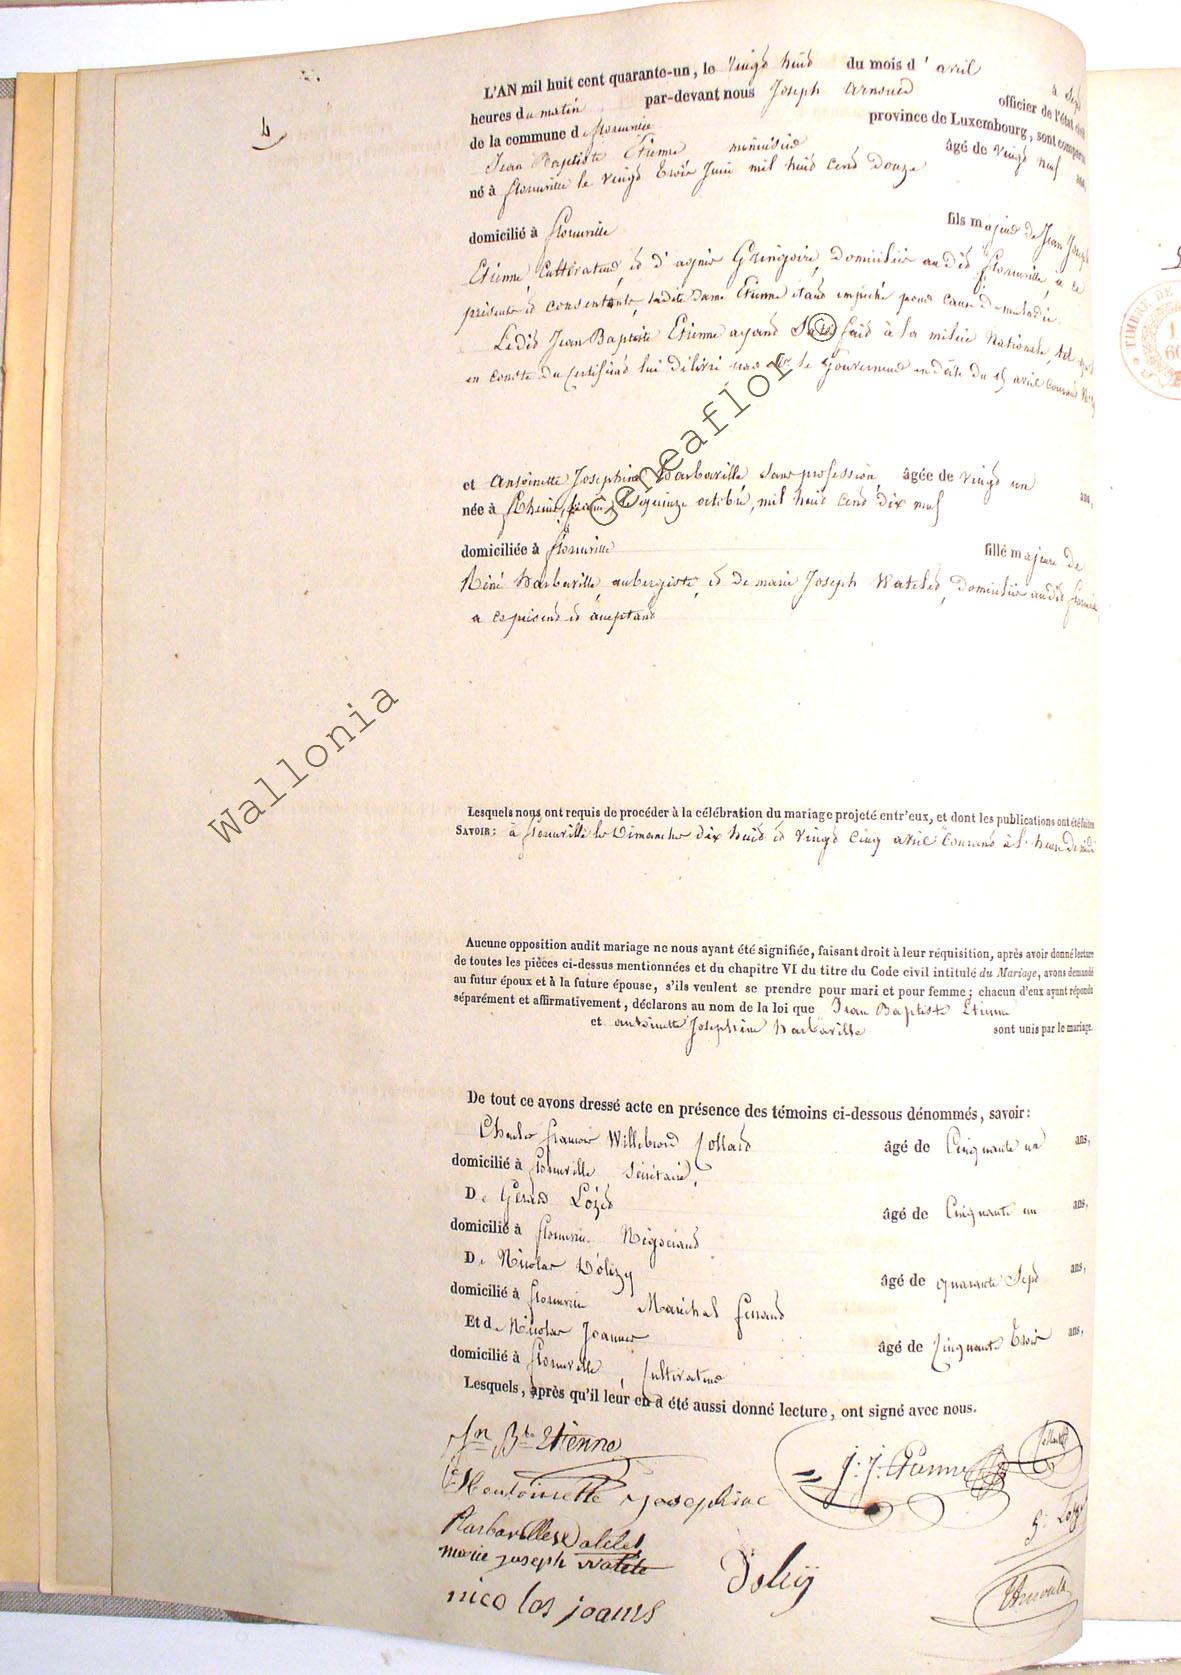 4
L'AN mil huit cent quarante-un, le vingt huit du mois d'avril à Sept
heures du matin par-devant nous Joseph Arnould officier de l'état civil
de la commune de florenville province de Luxembourg, sont comparus
Jean Baptiste Etienne menuisier âgé de vingt neuf ans,
né à florenville le vingt trois Juin mil huit cent douze
domicilié à florenville fils majeur de Jean Joseph
Etienne, Cultivateur, et d'agnès Gringoire, Domiciliés audit florenville, à ce
présents et consentants, ladite Dame Etienne étant empêché pour cause de maladie.
Ledit Jean Baptiste Etienne ayant Satisfait à la milice Nationale, tel qu'il
en conste du certificat lui délivré par Mr le Gouverneur en date du 15 avril courant
et Antoinette Josephine Barbaville sans profession, âgée de vingt un ans,
née à le quinze octobre, mil huit cent dix neuf
domiciliée à florenville fille majeure de
Réné Barbaville, aubergiste, et de marie Joseph Watelet, Domiciliés audit florenville
a ce présent et acceptant
Lesquels nous ont requis de procéder à la célébration du mariage projeté entr'eux, et dont les publications ont été faites
SAVOIR: à florenville les Dimanches dix huit et vingt cinq avril courant à l'heure de midi
Aucune opposition audit mariage ne nous ayant été signifiée, faisant droit à leur réquisition, après avoir donné lecture
de toutes les pièces ci-dessus mentionnées et du chapitre VI du titre du Code civil intitulé du Mariage, avons demandé
au futur époux et à la future épouse, s'ils veulent se prendre pour mari et pour femme; chacun d'eux ayant répondu
séparément et affirmativement, déclarons au nom de la loi que Jean Baptiste Etienne
et antoinette Josephine Barbaville sont unis par le mariage.
De tout ce avons dressé acte en présence des témoins ci-dessous dénommés, savoir:
Charles françois Willebrord Collard âgé de Cinquante un ans,
domicilié à florenville Sécrétaire,
De Gérard Lozet âgé de Cinquante un ans,
domicilié à florenville Négociant
De Nicolas Dolizy âgé de quarante Sept ans,
domicilié à florenville Maréchal ferrant
Et de Nicolas Joannes âgé de Cinquante trois ans,
domicilié à florenville, Cultivateur
Lesquels, après qu'il leur en a été aussi donné lecture, ont signé avec nous.
Jn Bte Etienne
J: J: Etienne
Collard
Antoinette Josephine
Barbaville Watelet
G: Lozet
marie joseph watele
Dolizij
Arnould
nicolas joanes
Wallonia Geneaflor ©
TIMBRE DE